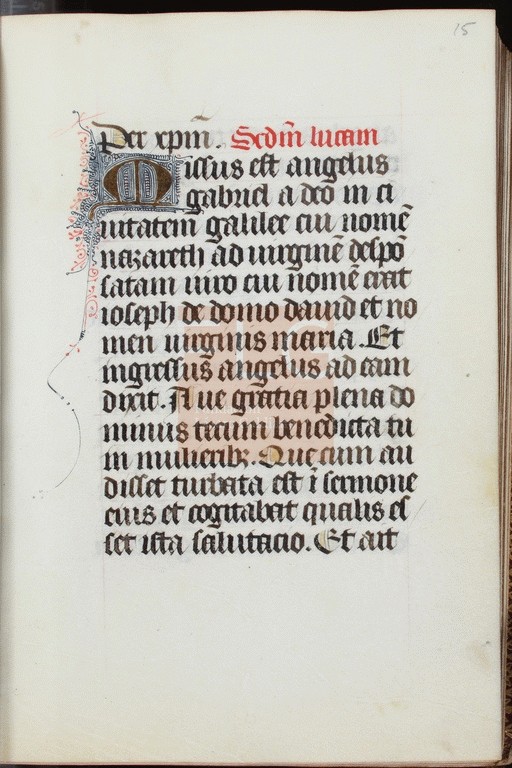 15
Per xp̄m̄. Scd̄m lucam
Missus est angelus
gabriel a deo in ci
uitatem galilee cui nomē
nazareth ad uirginē despō
satam uiro cui nomē erat
ioseph de domo dauid et no
men uirginis maria. Et
ingressus angelus ad eam
dixit. Aue gratia plena do
minus tecum benedicta tu
in mulieribꝫ. Que cum au
disset turbata est ī sermone
eius et cogitabat qualis es
set ista salutacio. Et ait